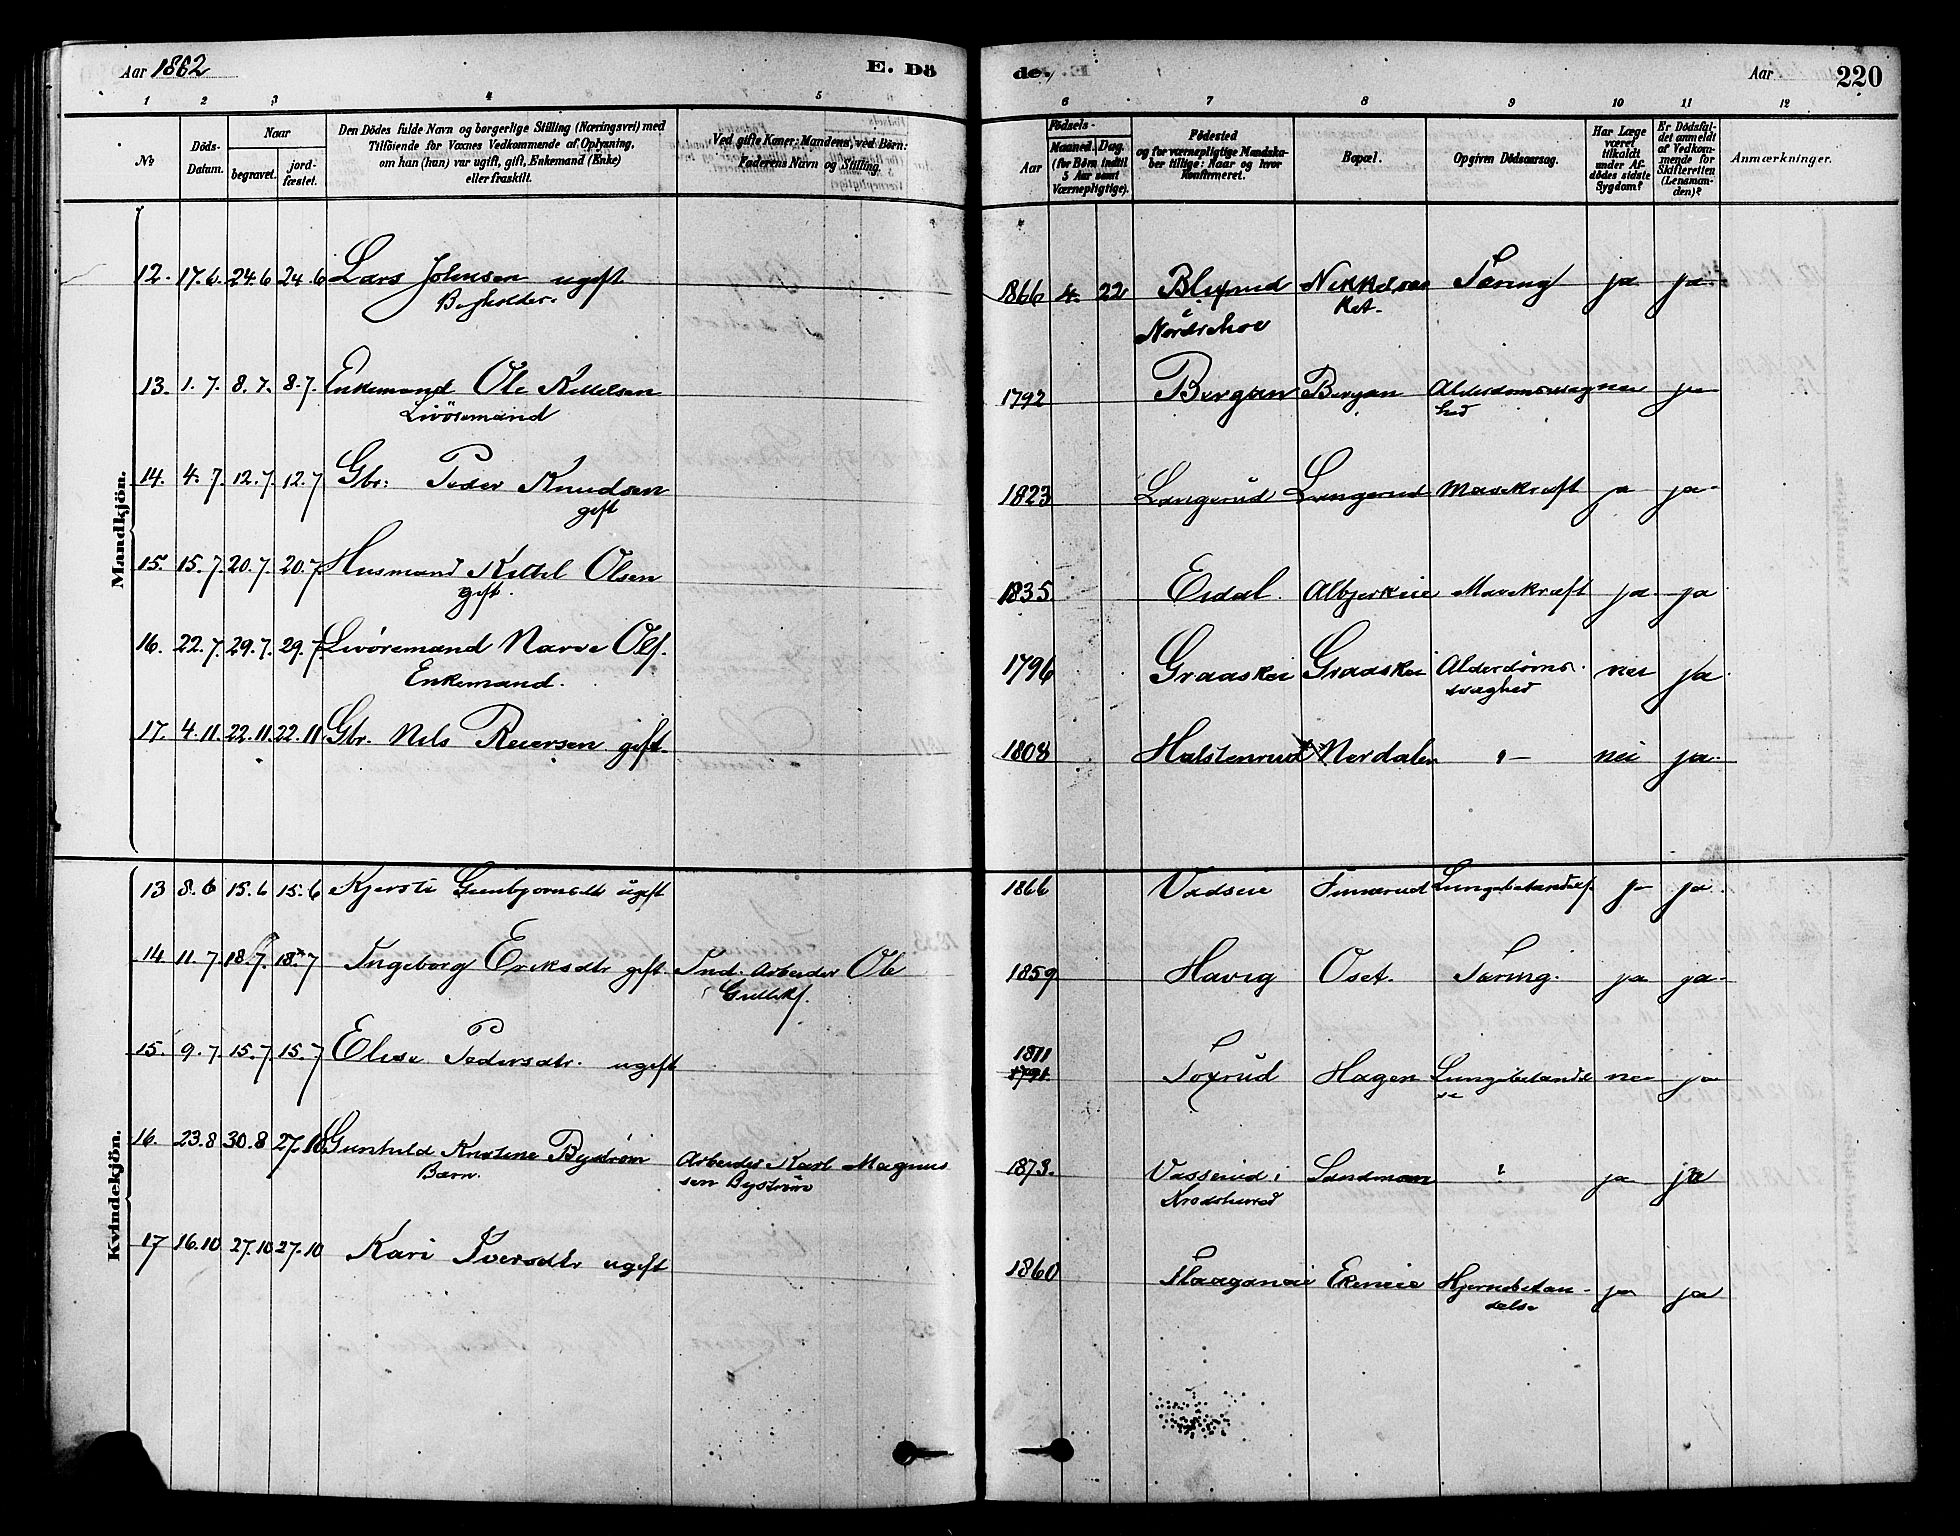 Aar 1862 E. Dö
1 2 3 4 5
№ Döds-Datum. Naar begravet. jordfæstet. Den Dödes fulde Navn og borgerlige Stilling (Næringsvei) med Tilföiende for Voxnes Vedkommende af Oplysning, om han (hun) var ugift, gift, Enkemand (Enke) eller fraskilt. Ved gifte Koner: Mandens, ved Börn: Faderens Navn og Stilling.
Mandkjön.
12. 17.6. 24.6 24.6 Lars Johnsen ugift
13. 1.7. 8.7. 8.7. Enkemand Ole Kittelsen
Livöremand
14. 4.7 12.7. 12.7 Gbr: Peder Knudsen
gift
15. 15.7 20.7. 20.7 Husmand Kittil Olsen
gift.
16. 22.7. 29.7. 29.7 Livöremand Narve Ols.
Enkemand.
17. 4.11. 22.11. 22.11. Gbr. Nils Reiersen gift.
Kvindekjön.
13 8.6 15.6 15.6 Kjersti ugift
14 11.7 18.7. 18.7 Ingeborg Eriksdtr gift Ind. Arbeider Ole
Gulliks.
15. 9.7. 15.7. 15.7 Elise Pedersdtr. ugift
16. 23.8 30.8 27.10 Gunhild Kristine Byström Arbeider Karl Magnus
Barn. sen Byström
17 16.10 27.10 27.10 Kari Iversdtr ugift
de. Aar 220
6 7 8 9 10 11 12
Födsels- Aar Maaned. Dag. (for Börn indtil 5 Aar samt Værnepligtige). Födested og for værnepligtige Mandskaber tillige: Naar og hvor Konfirmeret. Bopæl. Opgiven Dödsaarsag. Har Læge været tilkaldt under Afdödes sidste Sygdom? Er Dödsfaldet anmeldt af Vedkommende for Skifteretten (Lensmanden)? Anmærkninger.
1866 4. 22 Tæring ja ja.
1792 Bergan Bergan Alderdomssvag nei ja
hed
1823 Langerud Langerud Mavekræft ja ja
1835 Eidal. Albjerkeie Mavekræft ja ja
1796 Graaskei Graaskei Alderdoms. nei ja
svaghed
1808 Halstenrud Nerdalen "- nei ja.
1866 Vadseie Lungebetændels. ja ja
1859 Havig Oset. Tæring. ja ja
1811
1791 Foxrud Hagen Lungebetændel nei ja
se
1873. Vasserud i Sandmoen ? ja ja
Krødsherred
1860 Ekeneie Hjernebetæn- ja ja
delse